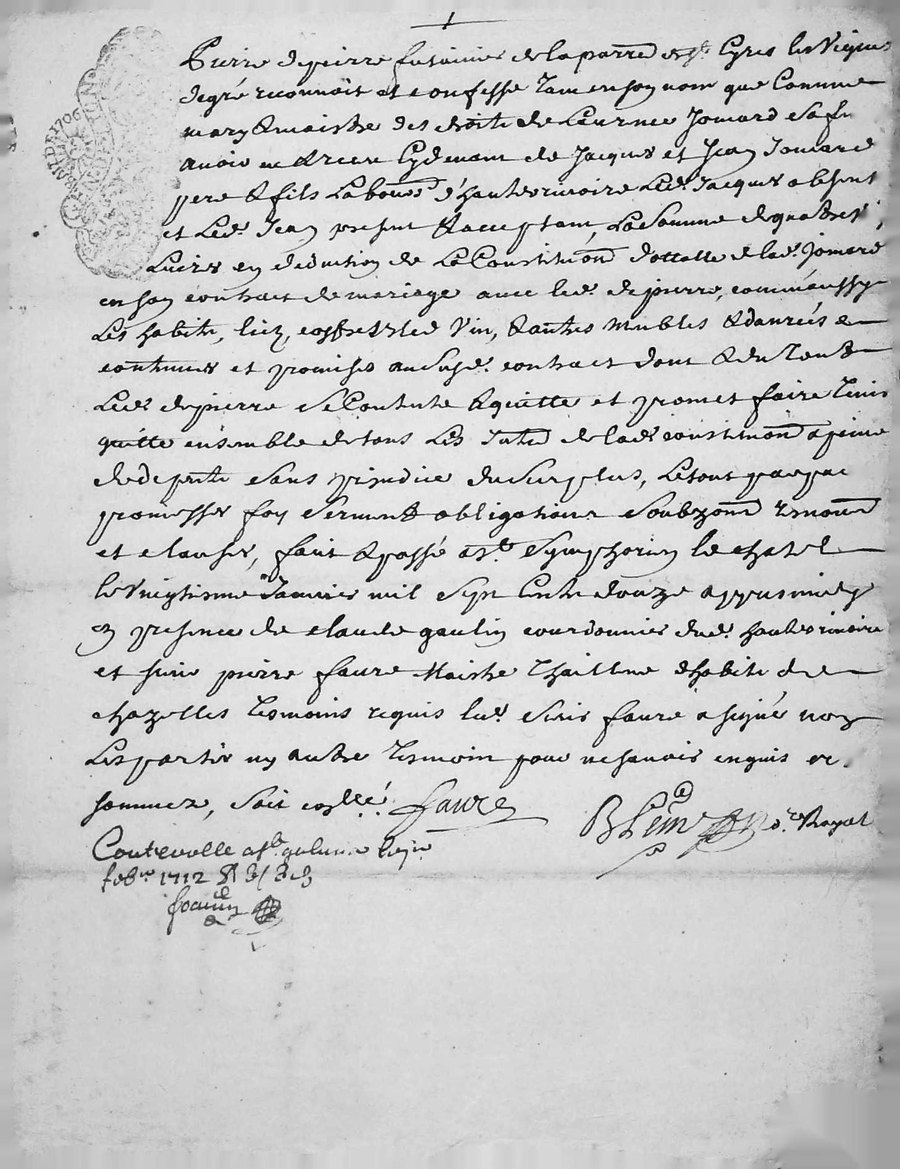 1
Pierre depierre futainier de la parre de st Cyres les Vignes
de gré reconnoit et confesse tant en son nom que Comme
mary & maistre des droits de Leurnee Jomard sa fe
avoir eu & receu Cydevant de Jacques et Jean Jomard
pere & fils Labours d'hauterivoire Led. Jacques absent
et Led. Jean present & acceptant, La Somme de quatre
Livres en deduction de La Constituon dottalle de lad. Jomard
en son contract de mariage avec led. depierre, comme aussy
Les habits, lict, coffre, bled Vin, & autres meubles & danrées
contenues et promises au susd. contract dont & du tout
Led. depierre se Contente & quitte et promet faire tenir
quitte ensemble de tous Les de lad. constitution a peine
de depens sans prejudice du Surplus, Le tout par
promesses foy Serment obligations Soubzons renons
et clauses, fait & passé a st. Symphorien le chatel
le Vingtiesme Janvier mil Sept Cents douze appres midy
en presence de claude gaulin courdonnier dud. hauterivoire
et sieur pierre faure Maistre Chailleur habitt de
chazelles tesmoins requis led. Sieur faure a signé non
Les parties ny autre tesmoin pour ne scavoir enquis et
sommez, Soit collé. faure
Nore Royal
Conterolle a st. galmier
febr. 1712